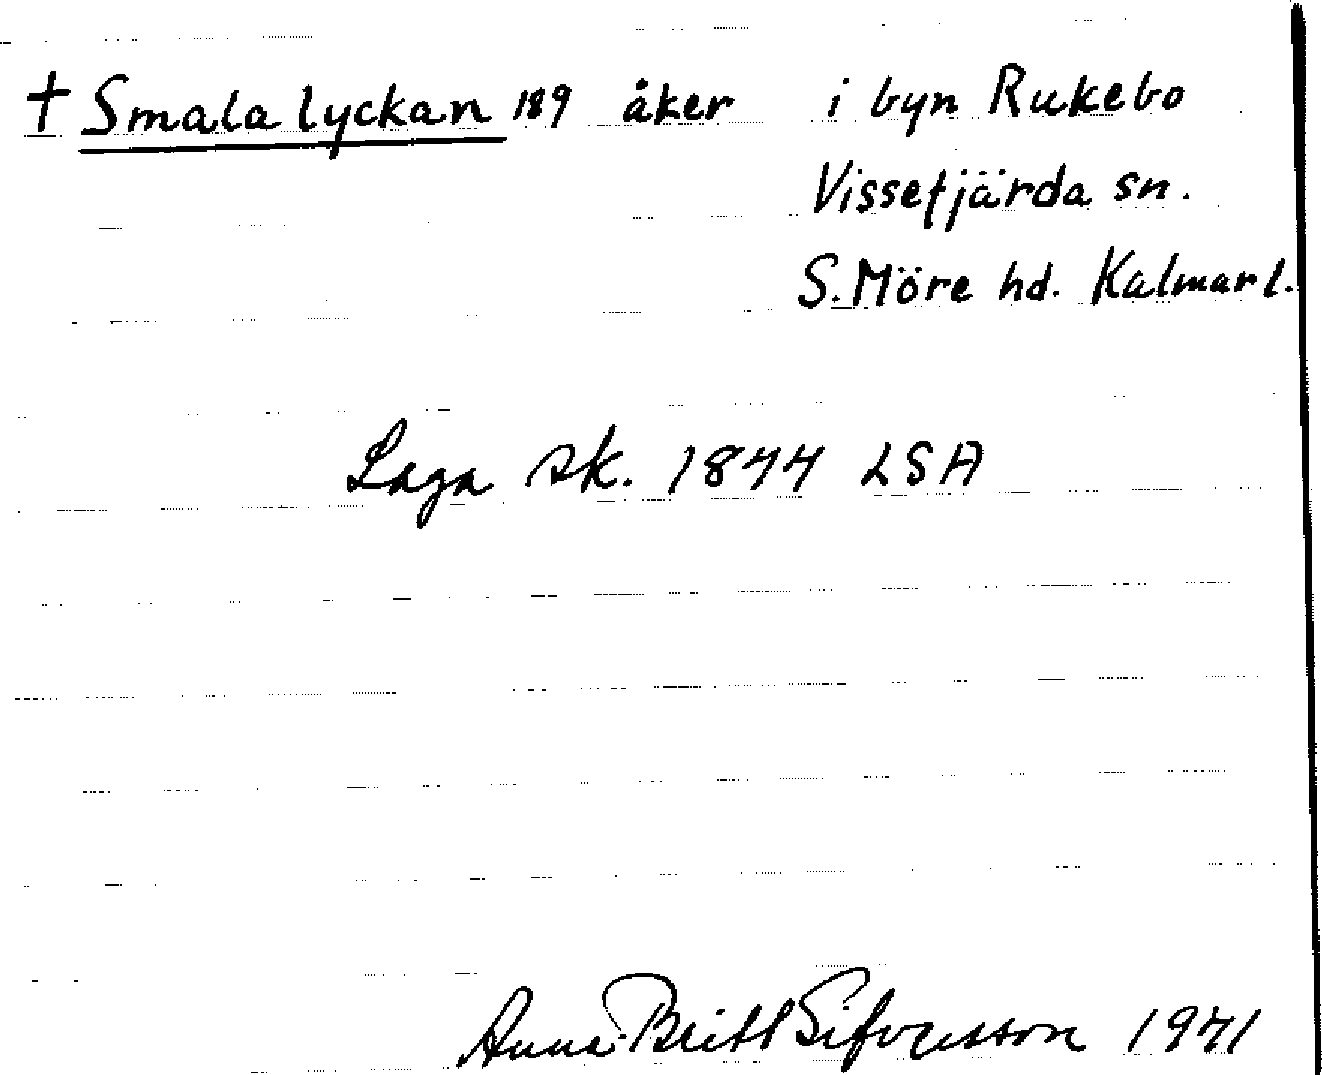 † Smala lyckan 189 åker i byn Rukebo
Vissefjärda sn.
S. Möre hd. Kalmar l.
Laga sk. 1844 LSA
Anna-Britt Sifvertsson 1971